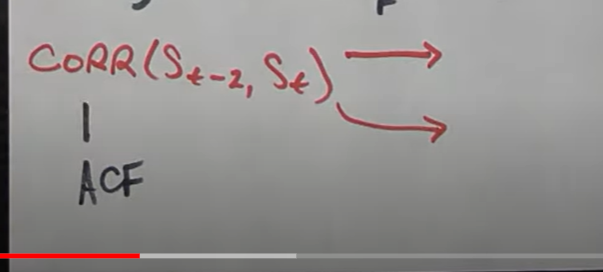 CORR(St-2, St)
ACF